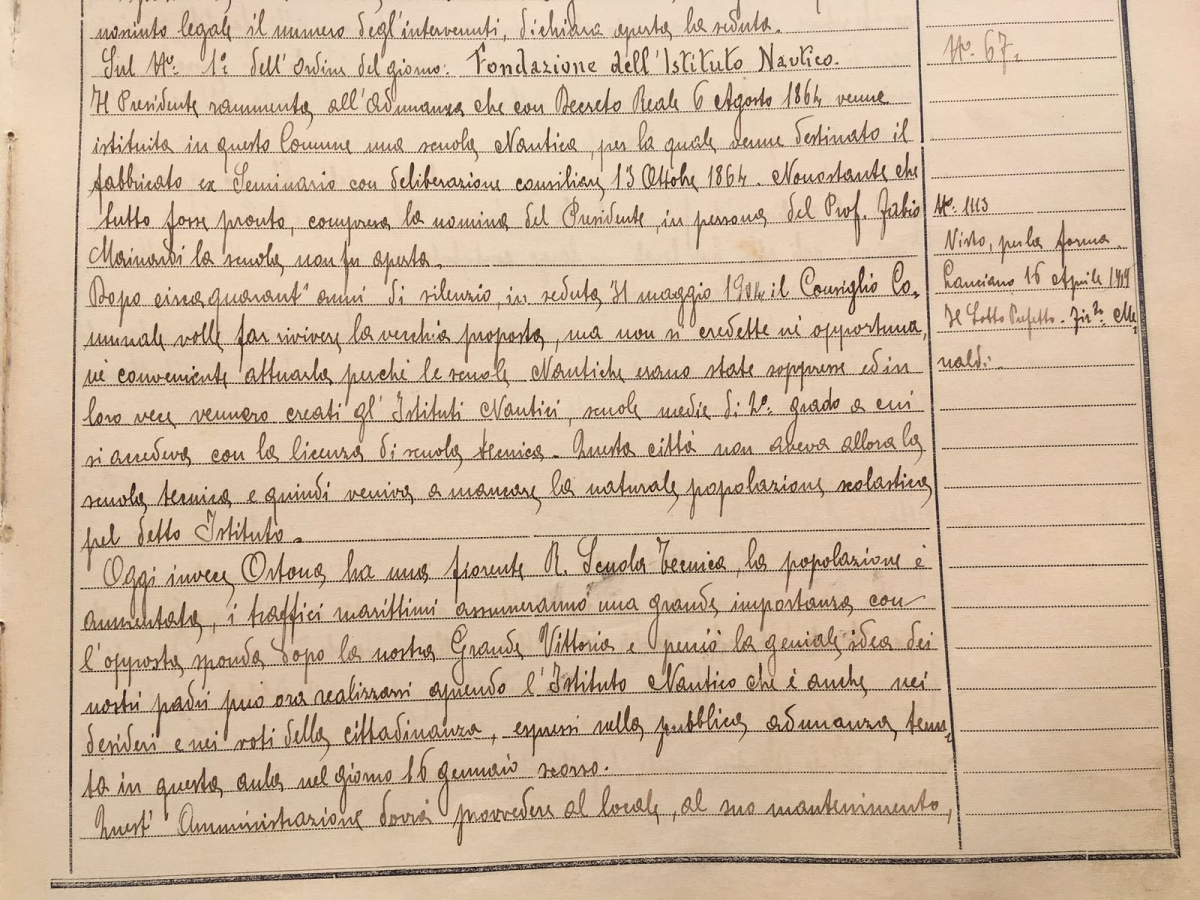 nosciuto legale il numero degl'intervenuti, dichiara aperta la seduta.
Sul No. 1o dell'Ordine del giorno: Fondazione dell'Istituto Nautico.
Il Presidente rammenta all'adunanza che con Decreto Reale 6 Agosto 1864 venne
istituita in questo Comune una scuola Nautica, per la quale venne destinato il
fabbricato ex Seminario con deliberazione consiliare 13 Ottobre 1864. Nonostante che
tutto fosse pronto, compresa la nomina del Presidente, in persona del Prof. Fabio
Mainardi la scuola non fu aperta.
Dopo circa quarant'anni di silenzio, in seduta maggio il Consiglio Co-
munale volle far rivivere la vecchia proposta, ma non si credette nè opportuna,
nè conveniente attuarla perchè le scuole Nautiche erano state soppresse ed in
loro vece vennero creati gl'Istituti Nautici, scuole medie di 2o. grado a cui
si accedeva con la licenza di scuola tecnica. Questa città non aveva allora la
scuola tecnica e quindi veniva a mancare la naturale popolazione scolastica
pel detto Istituto.
Oggi invece Ortona ha una fiorente R. Scuola Tecnica, la popolazione è
aumentata, i traffici marittimi assumeranno una grande importanza con
l'opposta sponda dopo la nostra Grande Vittoria e perciò la geniale idea dei
nostri padri può ora realizzarsi aprendo l'Istituto Nautico che è anche nei
desideri e nei voti della cittadinanza, espressi nella pubblica adunanza tenu-
ta in questa aula nel giorno 16 gennaio scorso.
Quest'Amministrazione dovrà provvedere al locale, al suo mantenimento,
No. 67.
No. 1113
Visto, per la forma.
Lanciano 16 Aprile 1919
Il Sotto Prefetto. Firto.
naldi.